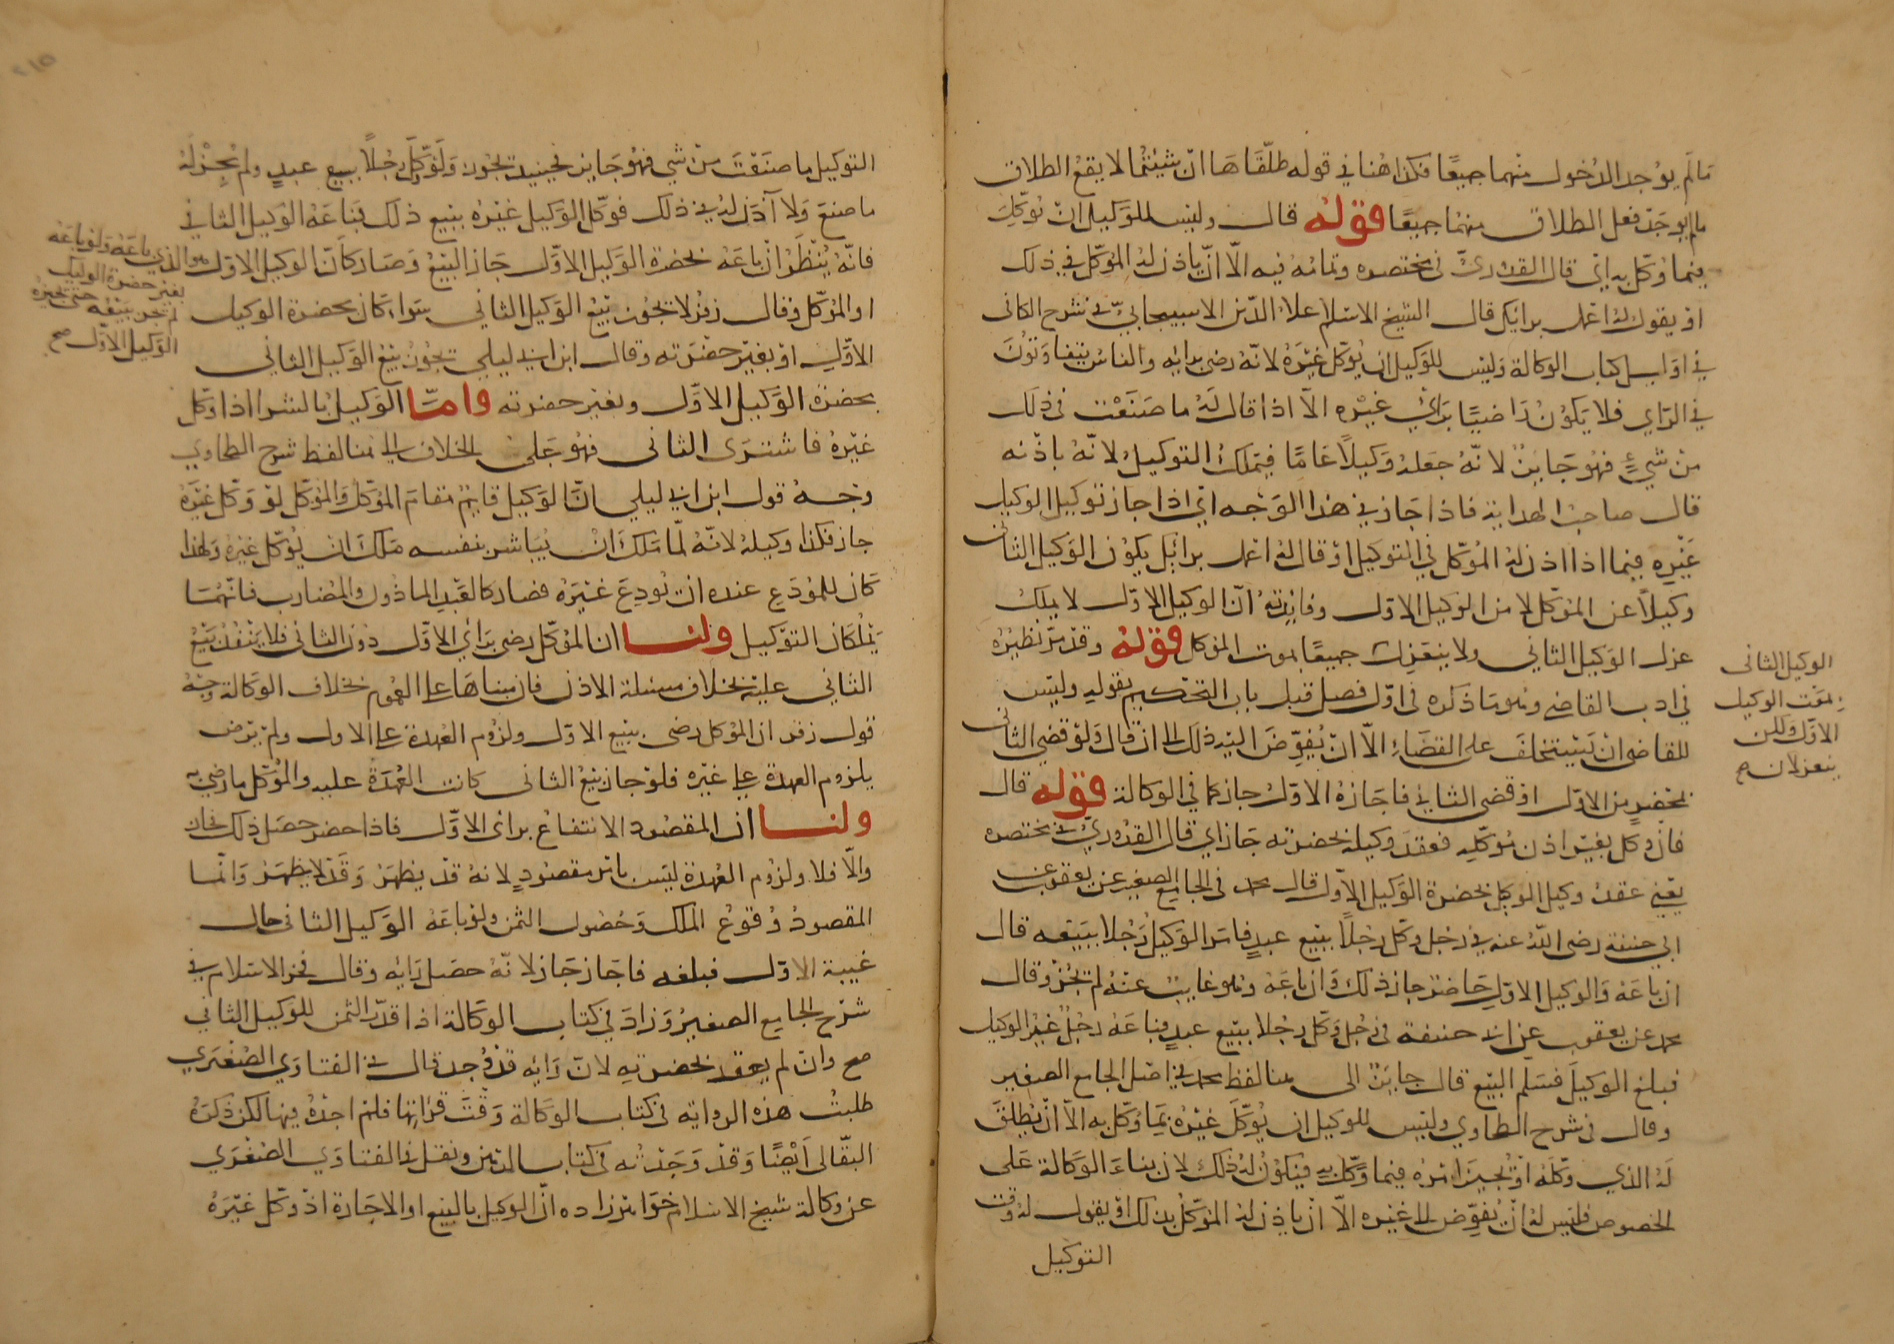 ما لم يوجد الدخول منهما جميعا فكذا هنا في قوله طلقاها ان شئتما لا يقع الطلاق
ما لم يوجد فعل الطلاق منهما جميعا قوله قال وليس للوكيل ان يوكل
فيما وكل به اي قال القدوري في مختصره وتمامه فيه الا ان ياذن له الموكل في ذلك
او يقول له اعمل برايك قال الشيخ الاسلام علاء الدين الاسبيجابي في شرح الكافي
في اوايل كتاب الوكالة وليس للوكيل ان يوكل غيره لانه رضي برايه والناس يتفاوتون
في الراي فلا يكون راضيا براي غيره الا اذا قال له ما صنعت في ذلك
من شيء فهو جايز لانه جعله وكيلا عاما فيملك التوكيل لانه باذنه
قال صاحب الهداية فاذا جاز في هذا الوجه اي اذا جاز توكيل الوكيل
غيره فيما اذا اذن له الموكل في التوكيل او قال له اعمل برايك يكون الوكيل الثاني
وكيلا عن الموكل لا من الوكيل الاول وفايدته ان الوكيل الاول لا يملك
عزل الوكيل الثاني ولا ينعزلان جميعا بموت الموكل قوله وقد مر نظيره
في ادب القاضي وهو ما ذكره في اول فصل قبل باب التحكيم بقوله وليس
للقاضي ان يستخلف على القضاء الا ان يفوض اليه ذلك الى ان قال ولو قضى الثاني
بمحضر من الاول او قضى الثاني فاجازه الاول جاز كما في الوكالة قوله قال
فان وكل بغير اذن موكله فعقد وكيله بحضرته جاز اي قال القدوري في مختصره
يعني عقد وكيل الوكيل بحضرة الوكيل الاول قال محمد في الجامع الصغير عن يعقوب عن
ابي حنيفة رضي الله عنه في رجل وكل رجلا ببيع عبد فامر الوكيل رجلا ببيعه قال
ان باعه والوكيل الاول حاضر جاز ذلك وان باعه وهو غايب عنه لم يجز وقال
محمد عن يعقوب عن ابي حنيفة في رجل وكل رجلا ببيع عبد فباعه رجل غير الوكيل
فبلغ الوكيل فسلم البيع قال جايز الى هنا لفظ محمد في اصل الجامع الصغير
وقال في شرح الطحاوي وليس للوكيل ان يوكل غيره بما وكل به الا ان يطلق
له الذي وكله او يجيز امره فيما وكل به فيكون له ذلك لان بناء الوكالة على
الخصوص فليس له ان يفوض الى غيره الا ان ياذن له الموكل بذلك او يقول له وقت
التوكيل
الوكيل الثاني
بموت الوكيل
الاول ولكن
ينعزلان صح
التوكيل ما صنعت من شي فهو جايز فحينيذ يجوز ولو وكل رجلا ببيع عبد ولم يجز له
ما صنع ولا اذن له في ذلك فوكل الوكيل غيره ببيع ذلك فباعه الوكيل الثاني
فانه ينظر ان باعه بحضرة الوكيل الاول جاز البيع وصار كان الوكيل الاول هو الذي باعه ولو باعه
بغير حضرة الوكيل
لم يجز بيعه حتى يجيزه
الوكيل الاول صح
او الموكل وقال زفر لا يجوز بيع الوكيل الثاني سواء كان بحضرة الوكيل
الاول او بغير حضرته وقال ابن ابي ليلى يجوز بيع الوكيل الثاني
بحضرة الوكيل الاول وبغير حضرته واما الوكيل بالشرا اذا وكل
غيره فاشترى الثاني فهو على الخلاف الى هنا لفظ شرح الطحاوي
وجه قول ابن ابي ليلى ان الوكيل قايم مقام الموكل والموكل لو وكل غيره
جاز فكذا وكيله لانه لما ملك ان يباشر بنفسه ملك ان يوكل غيره ولهذا
كان للمودع عنده ان يودع غيره فصار كالعبد الماذون والمضارب فانهما
يملكان التوكيل ولنا ان الموكل رضي براي الاول دون الثاني فلا ينفذ بيع
الثاني عليه بخلاف مسئلة الاذن فان مبناها على العموم بخلاف الوكالة وجه
قول زفر ان الموكل رضي ببيع الاول ولزوم العهدة على الاول ولم يرض
بلزوم العهدة على غيره فلو جاز بيع الثاني كانت العهدة عليه والموكل ما رضي به
ولنا ان المقصود الانتفاع براي الاول فاذا حضر حصل ذلك فجاز
والا فلا ولزوم العهدة ليس بامر مقصود لانه قد يظهر وقد لا يظهر وانما
المقصود وقوع الملك وحصول الثمن ولو باعه الوكيل الثاني حال
غيبة الاول فبلغه فاجاز جاز لانه حصل رايه وقال فخر الاسلام في
شرح الجامع الصغير وزاد في كتاب الوكالة اذا قدر الثمن للوكيل الثاني
صح وان لم يعقد بحضرته لان رايه قد وجد قال في الفتاوي الصغرى
طلبت هذه الرواية في كتاب الوكالة وقت قراتها فلم اجده فيها لكن ذكره
البقالي ايضا وقد وجدته في كتاب الرهن ونقل في الفتاوي الصغرى
عن وكالة شيخ الاسلام خواهرزاده ان الوكيل بالبيع او الاجارة اذ وكل غيره